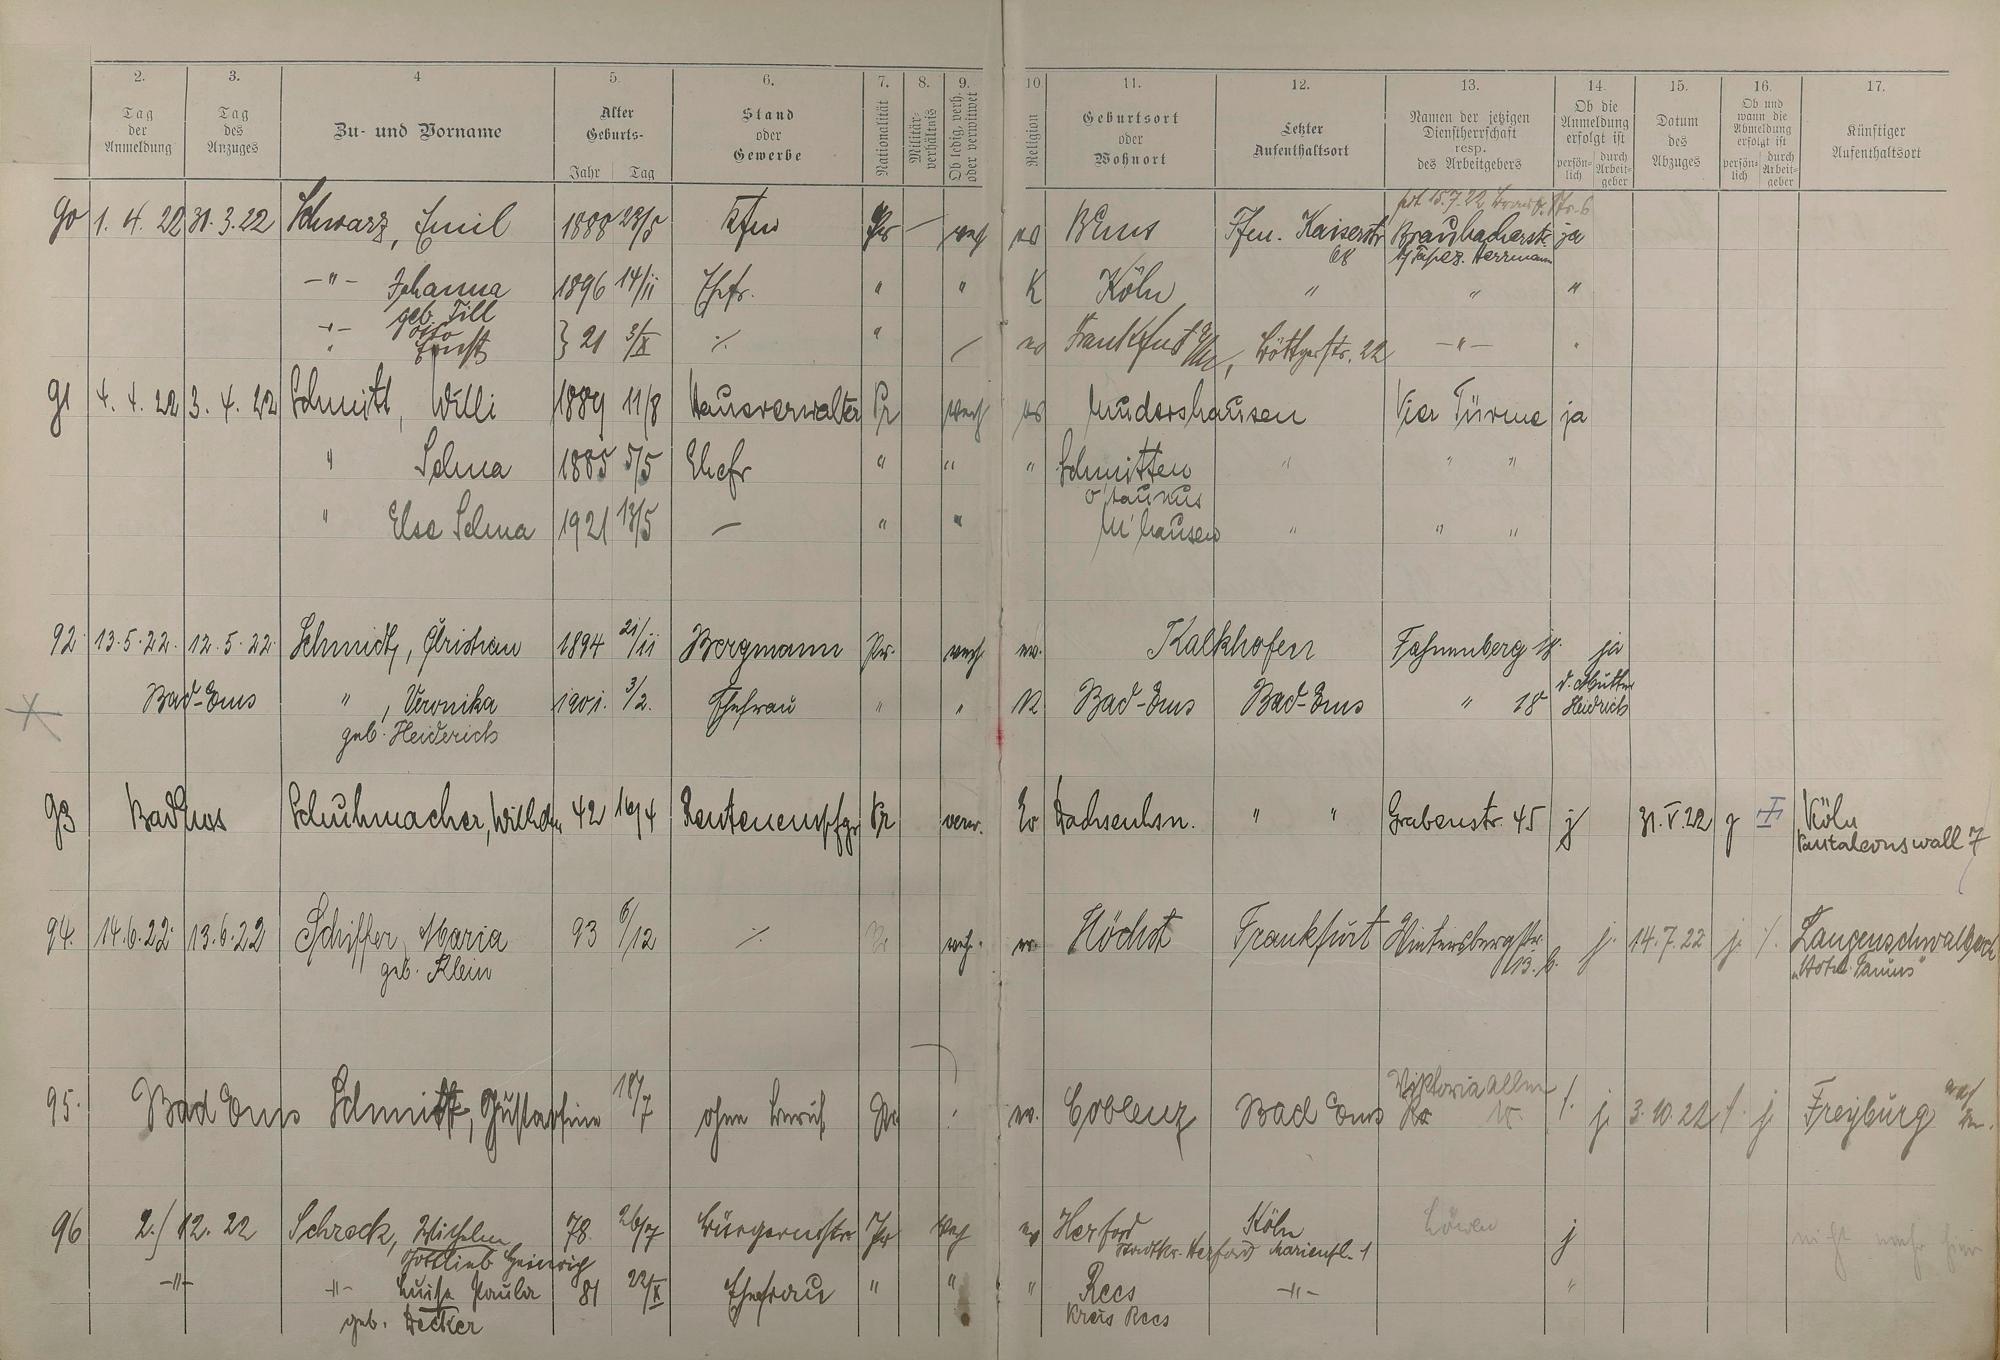 2. 3. 4 5. 6. 7. 8. 9. 10 11. 12. 13. 14. 15. 16. 17.
Tag der Anmeldung
Tag des Anzuges
Zu- und Vorname
Alter Geburts-
Jahr Tag
Stand oder Gewerbe
Nationalität
Militär-verhältnis
Ob ledig, verh. oder verwitwet
Religion
Geburtsort oder Wohnort
Letzter Aufenthaltsort
Namen der jetzigen Dienstherrschaft resp. des Arbeitgebers
Ob die Anmeldung erfolgt ist
persön-lich durch Arbeit-geber
Datum des Abzuges
Ob und wann die Abmeldung erfolgt ist
persön-lich durch Arbeit-geber
Künftiger Aufenthaltsort
15.7.22
90 1. 4. 22 31. 3. 22 Schwarz, Emil 1888 23/5 Kfm Pr — verh ev BEms Ffm. Kaiserstr 68 Braubacherstr. ja
Tapez. Herrmann
-"- Johanna 1896 14/11 Ehefr. " " K Köln " " "
geb. Till
-"- Otto
" Ernst } 21 3/X ∕. " / ev Frankfurt a/M, Böttgerstr. 22 -"- "
91 4. 4. 22 3. 4. 22 Schmitt, Willi 1889 11/8 Hausverwalter Pr verh ev Mudershausen Vier Türme ja
" Selma 1885 5/5 Ehefr " " " Schmitten " " "
o/taunus
" Else Selma 1921 13/5 — " " M'hausen " " "
92 13. 5. 22. 12. 5. 22. Schmidt, Christian 1894 21/11 Bergmann Pr. verh. ev. Kalkhofen Fahnenberg 18. ja
Bad-Ems " , Veronika 1901. 3/2. Ehefrau " " K Bad-Ems Bad-Ems " 18 d. Mutter Heidrich
geb. Heiderich
93 Bad Ems Schuhmacher, Wilhelm 42 16/4 Rentenempfgr Pr verw. Ev Dachsenhsn. " " Grabenstr. 45 j 31. V. 22 j Köln
Pantaleonswall 7
94. 14. 6. 22. 13. 6. 22 Schiffer, Maria 93 6/12 ∕. Pr verh. ev. Höchst Frankfurt Wintersbergstr. 13. j. 14. 7. 22 j. /. Langenschwalbach
geb. Klein "Hotel Taunus"
95. Bad Ems Schmitt, Gustavfine 18/7 ohne Beruf Pr ev. Coblenz Bad Ems Viktoria allee /. j. 3. 10. 22 /. j. Freyburg
96 2./12. 22 Schreck, Wilhelm 78. 26/7 Bürgermstr. Pr verh ev Herford Köln Löwen j nicht mehr hier
Gottlieb Heinrich Stadtkr. Herford Marienpl. 1
-"- -"- Luise Paula 81 22/X Ehefrau " " " Rees -"- "
geb. Decker Kreis Rees